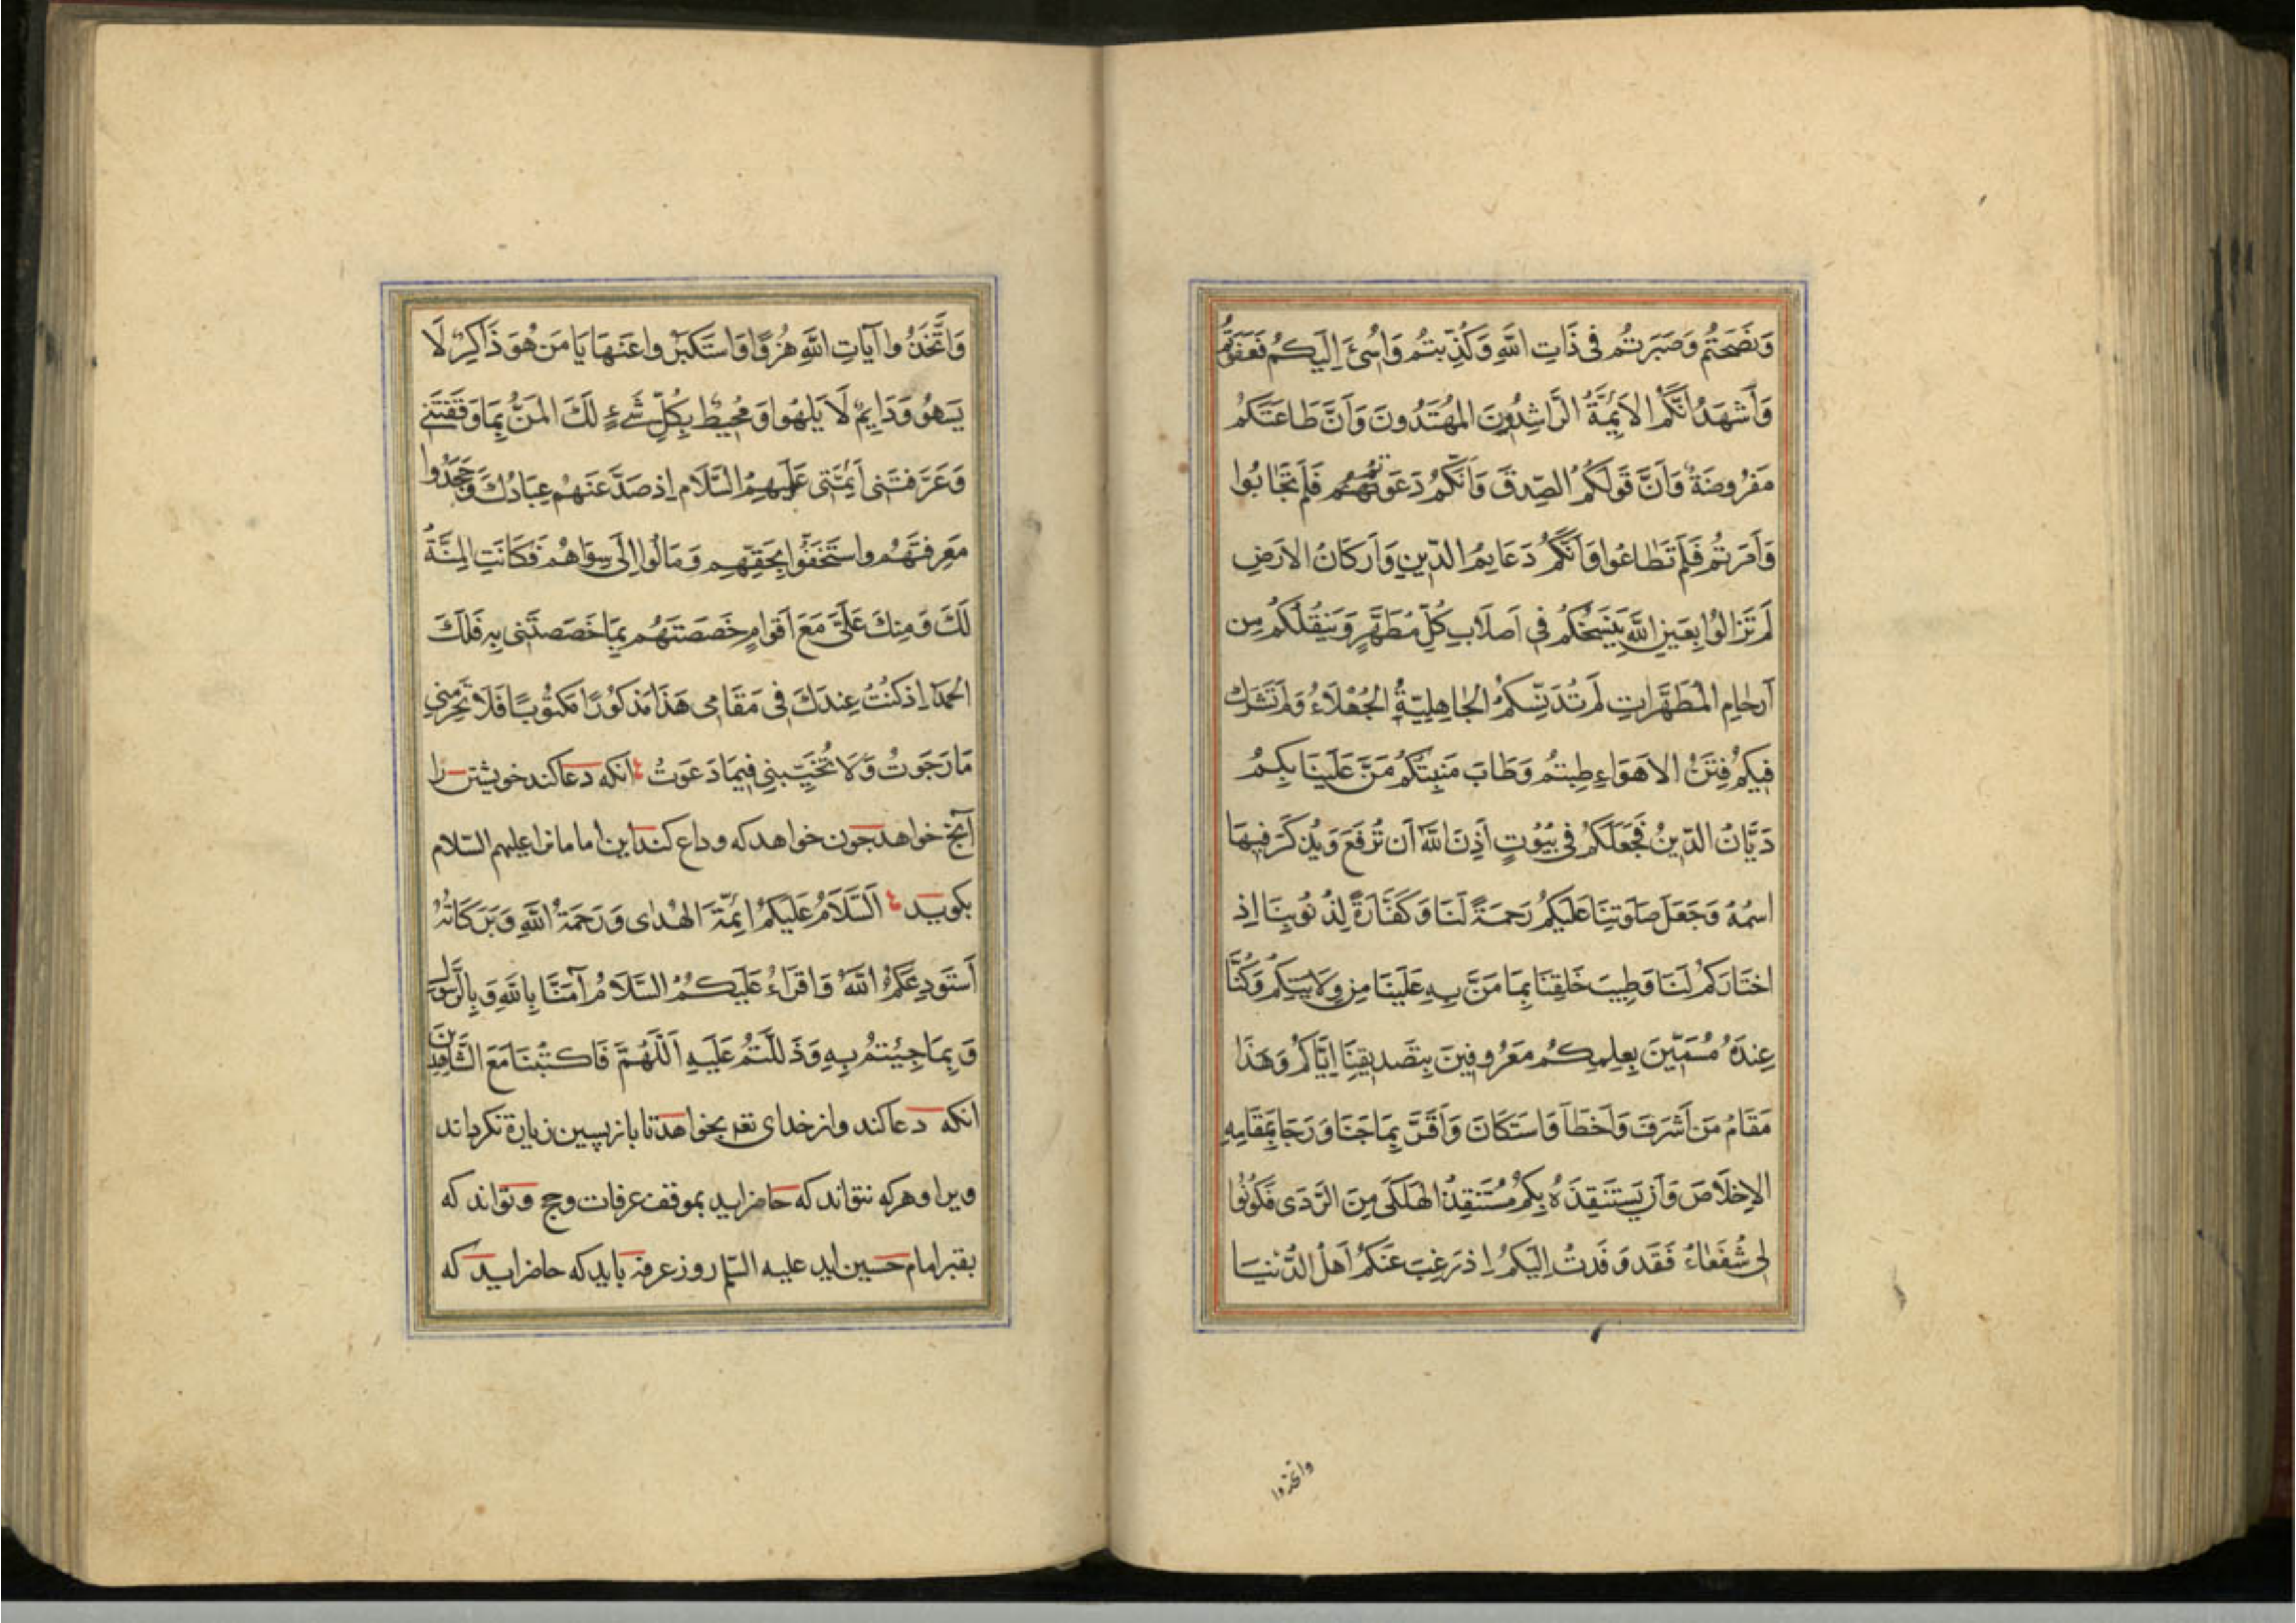 وَنَصَحتُم وَصَبَرتُم فى ذَاتِ اللهِ وَكُذِّبتُم وَاُسِئَ اِلَيكُم فَعَفَوتُم
وَأَشهَدُ اَنَّكُم الاَئِمَّةُ الرَّاشِدُونَ المُهتَدُونَ وَاَنَّ طَاعَتَكُم
مَفرُوضَةٌ وَاَنَّ قَولَكُم الصِّدقَ وَاَنَّكُم دَعَوتُمُوهُم فَلَم تُجَابُوا
وَأَمَرتُم فَلَم تُطَاعُوا وَاَنَّكُم دَعَايِمُ الدِّينِ وَاَركَانُ الاَرضِ
لَم تَزَالُوا بِعَينِ اللهِ يَنسَخُكُم فى اَصلَابِ كُلِّ مُطَهَّرٍ وَيَنقُلُكُم مِن
اَرحَامِ المُطَهَّرَاتِ لَم تُدَنِّسكُمُ الجَاهِلِيَّةُ الجُهلَاءُ وَلَم تَشرَك
فِيكُم فِتَنُ الاَهوَاءِ طِبتُم وَطَابَ مَنبِتُكُم مَنَّ عَلَينَا بِكُم
دَيَّانُ الدِّينِ فَجَعَلَكُم فى بُيُوتٍ اَذِنَ اللهُ اَن تُرفَعَ وَيُذكَرَ فِيهَا
اسمُهُ وَجَعَلَ صَلَوتِنَا عَلَيكُم رَحمَةً لَنَا وَكَفَّارَةً لِذُنُوبِنَا اِذ
اختَارَكُم لَنَا وَطِيبَ خَلقِنَا بِمَا مَنَّ بِهِ عَلَينَا مِن وِلَايَتِكُم وَكُنَّا
عِندَهُ مُسَمَّينَ بِعِلمِكُم مَعرُوفِينَ بِتَصدِيقِنَا اِيَّاكُم وَهَذَا
مَقَامُ مَن أَشرَفَ وَاَخطَأَ وَاستَكَانَ وَاَقَرَّ بِمَا جَنَا وَرَجَا بِمَقَامِهِ
الاِخلَاصَ وَاَن يَستَنقِذَهُ بِكُم مُستَنقِذُ الهَلكَى مِنَ الرَّدَى فَكُونُوا
لِى شُفَعَاءُ فَقَد وَفَدتُ اِلَيكُم اِذ رَغِبَ عَنكُم اَهلُ الدُّنيَا
واتخذوا
وَاتَّخَذُوا آيَاتِ اللهِ هُزُوًا وَاستَكبَرُوا عَنهَا يَا مَن هُوَ ذَاكِرٌ لَا
يَسهُو وَدَايِمٌ لَا يَلهُوا وَمُحِيطٌ بِكُلِّ شَىءٍ لَكَ المَنُّ بِمَا وَفَّقتَنى
وَعَرَّفتَنى اَئِمَّتى عَلَيهِمُ السَّلَام اِذ صَدَّ عَنهُم عِبَادُكَ وَجَحَدُوا
مَعرِفَتَهُم وَاستَخَفُّوا بِحَقِّهِم وَمَالُوا اِلَى سِوَاهُم فَكَانَتِ المِنَّةُ
لَكَ وَمِنكَ عَلَىَّ مَعَ اَقوَامٍ خَصَصتَهُم بِمَا خَصَصتَنى بِهِ فَلَكَ
الحَمدُ اِذ كُنتُ عِندَكَ فى مَقَامِى هَذَا مَذكُورًا مَكتُوبًا فَلَا تَحرِمنى
مَا رَجَوتُ وَلَا تُخَيِّبنى فِيمَا دَعَوتُ انكه دعا كند خويشتن را
آنچ خواهد چون خواهد كه وداع كند اين امامانرا عليهم السّلام
بكويد اَلسَّلَامُ عَلَيكُم اَئِمَّةَ الهُدَى وَرَحمَةُ اللهِ وَبَرَكَاتُهُ
اَستَودِعُكُم اللهَ وَاَقرَاءُ عَلَيكُمُ السَّلَامُ آمَنَّا بِاللهِ وَبِالرَّسُولِ
وَبِمَا جِئتُم بِهِ وَدَلَلتُم عَلَيهِ اَللَّهُمَّ فَاكتُبنَا مَعَ الشَّاهِدِينَ
انكه دعا كند واز خداى تعه بخواهد تا بازپسين زيارة نكرداند
ويرا وهركه نتواند كه حاضر ايد بموقف عرفات وحج وتواند كه
بقبر امام حسين ايد عليه السّلم روز عرفه بايد كه حاضر ايد كه